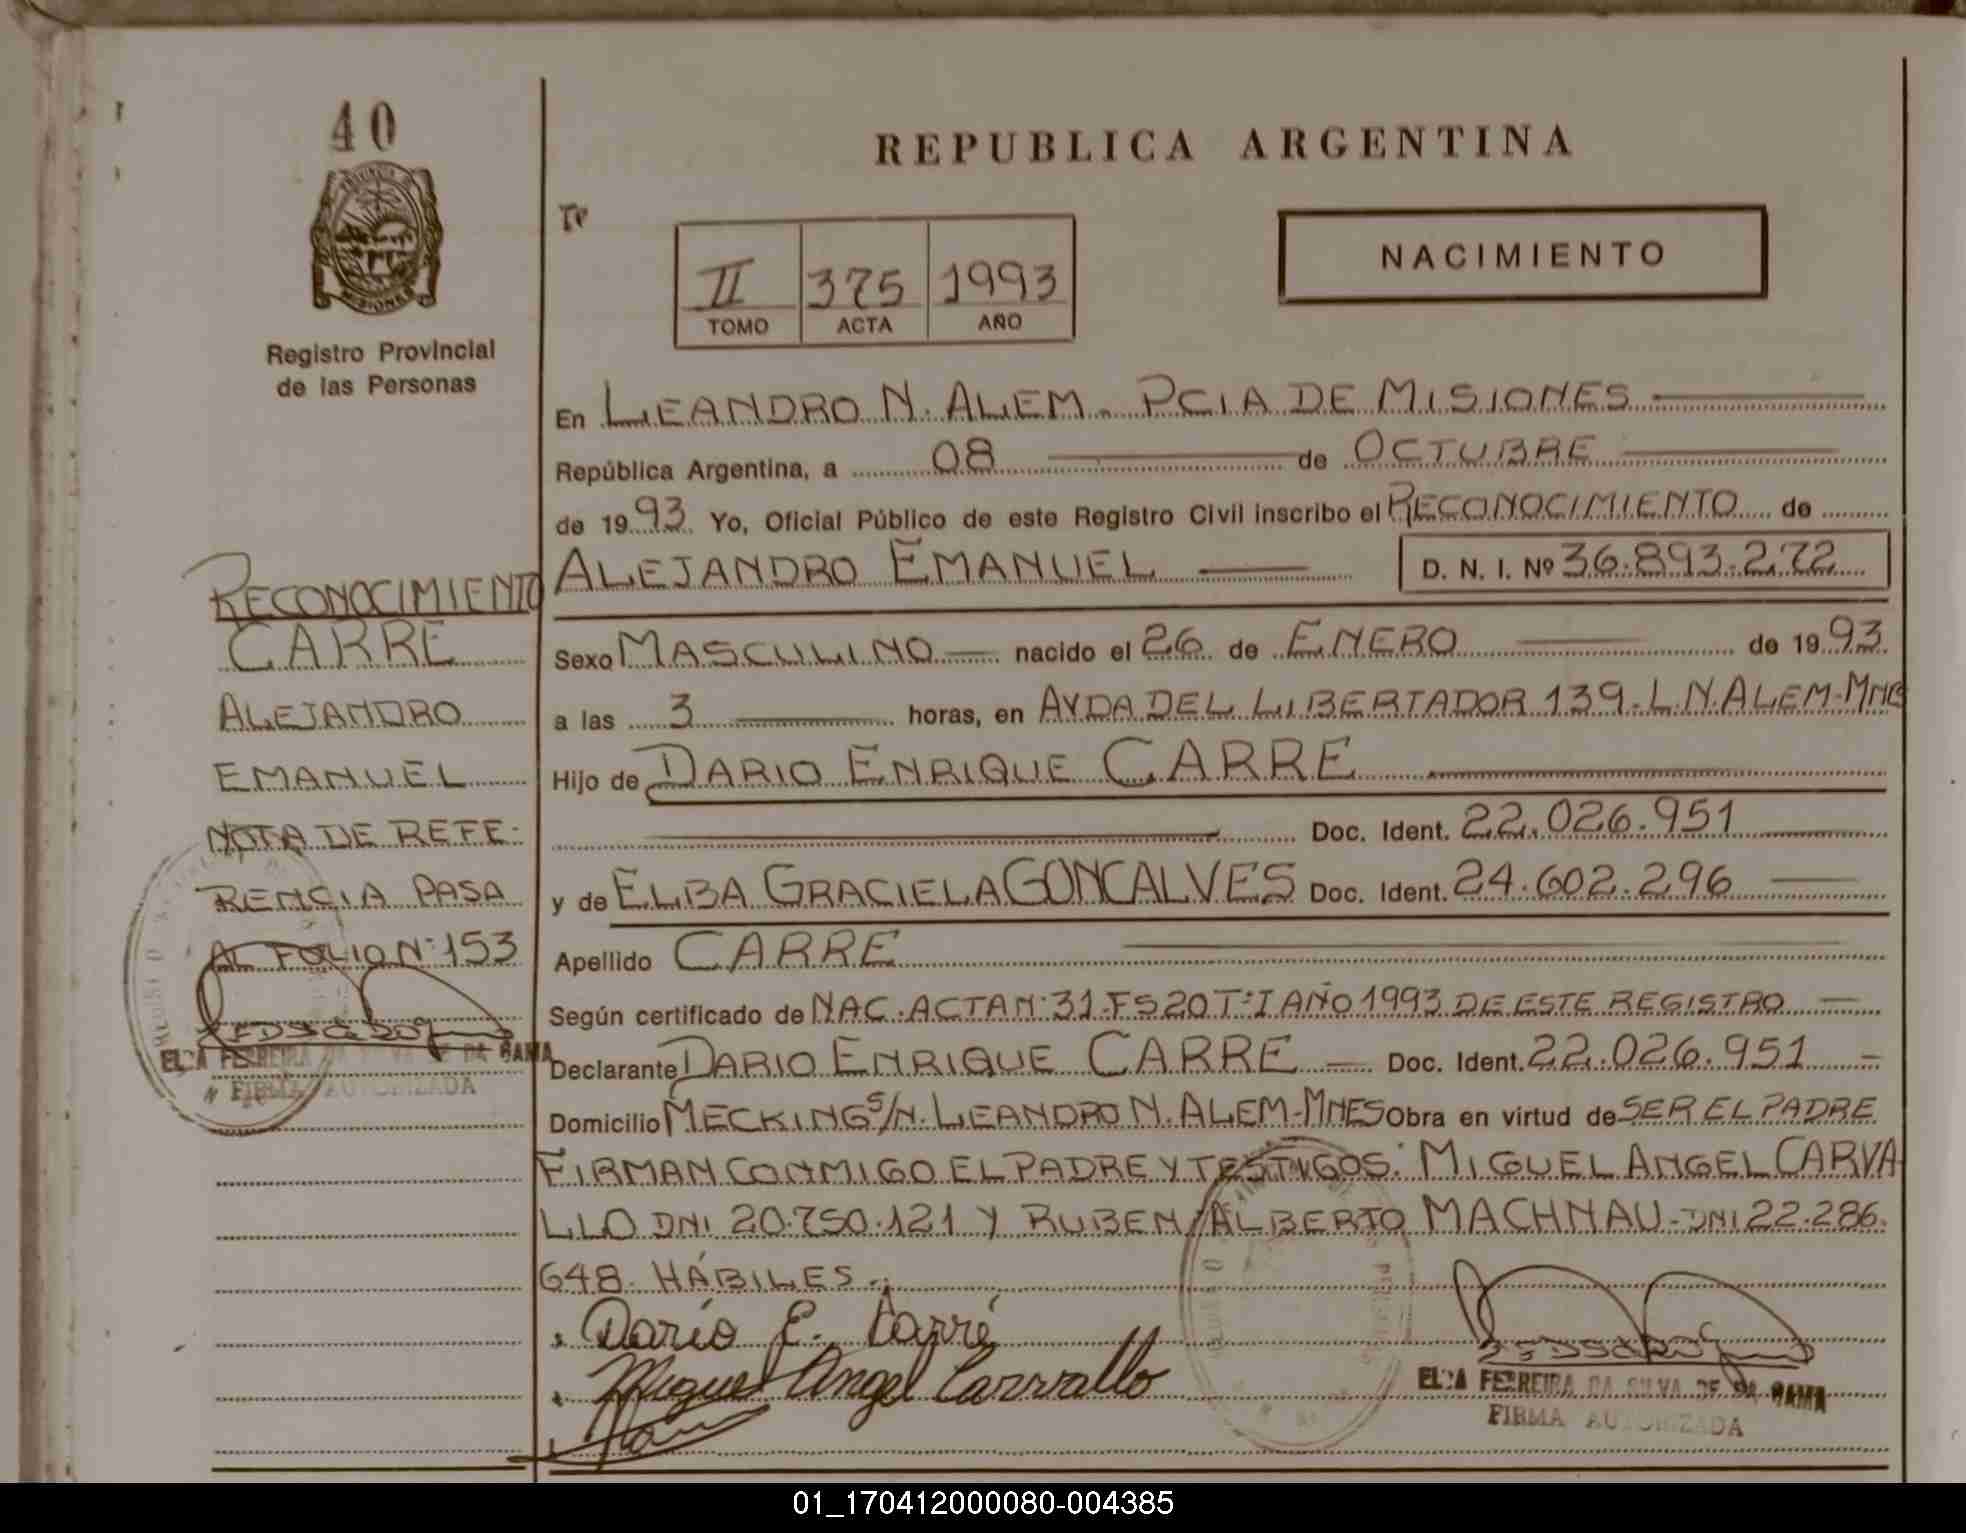 40
PROVINCIA DE
MISIONES
Registro Provincial
de las Personas
REPUBLICA ARGENTINA
Tº
II 375 1993
TOMO ACTA AÑO
NACIMIENTO
En LEANDRO N. ALEM. PCIA DE MISIONES
República Argentina, a 08 de OCTUBRE
de 1993 Yo, Oficial Público de este Registro Civil inscribo el RECONOCIMIENTO de
ALEJANDRO EMANUEL D. N. I. Nº 36.893.272
Sexo MASCULINO nacido el 26 de ENERO de 1993
a las 3 horas, en AVDA DEL LIBERTADOR 139. L.N. ALEM-MNES
Hijo de DARIO ENRIQUE CARRE
Doc. Ident. 22.026.951
y de ELBA GRACIELA GONCALVES Doc. Ident. 24.602.296
Apellido CARRE
Según certificado de NAC. ACTA N° 31-FS 20 T° I AÑO 1993 DE ESTE REGISTRO
Declarante DARIO ENRIQUE CARRE Doc. Ident. 22.026.951
Domicilio MECKING S/N. LEANDRO N. ALEM-MNES Obra en virtud de SER EL PADRE
FIRMAN CONMIGO EL PADRE Y TESTIGOS: MIGUEL ANGEL CARVA
LLO DNI 20.750.121 Y RUBEN ALBERTO MACHNAU-DNI 22.286.
648. HÁBILES.
Darío E. Carré
Miguel Angel Carvallo
ELSA FERREIRA DA SILVA DE DA GAMA
FIRMA AUTORIZADA
RECONOCIMIENTO
CARRE
ALEJANDRO
EMANUEL
NOTA DE REFE-
RENCIA PASA
AL FOLIO N° 153
ELSA FERREIRA DA SILVA DE DA GAMA
FIRMA AUTORIZADA
01_170412000080-004385